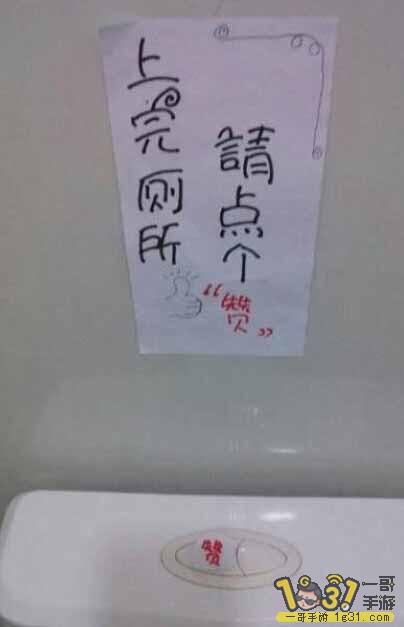 上完厕所
請点个
“赞”
赞
1g31
一哥
手游
一哥手游 1g31.com